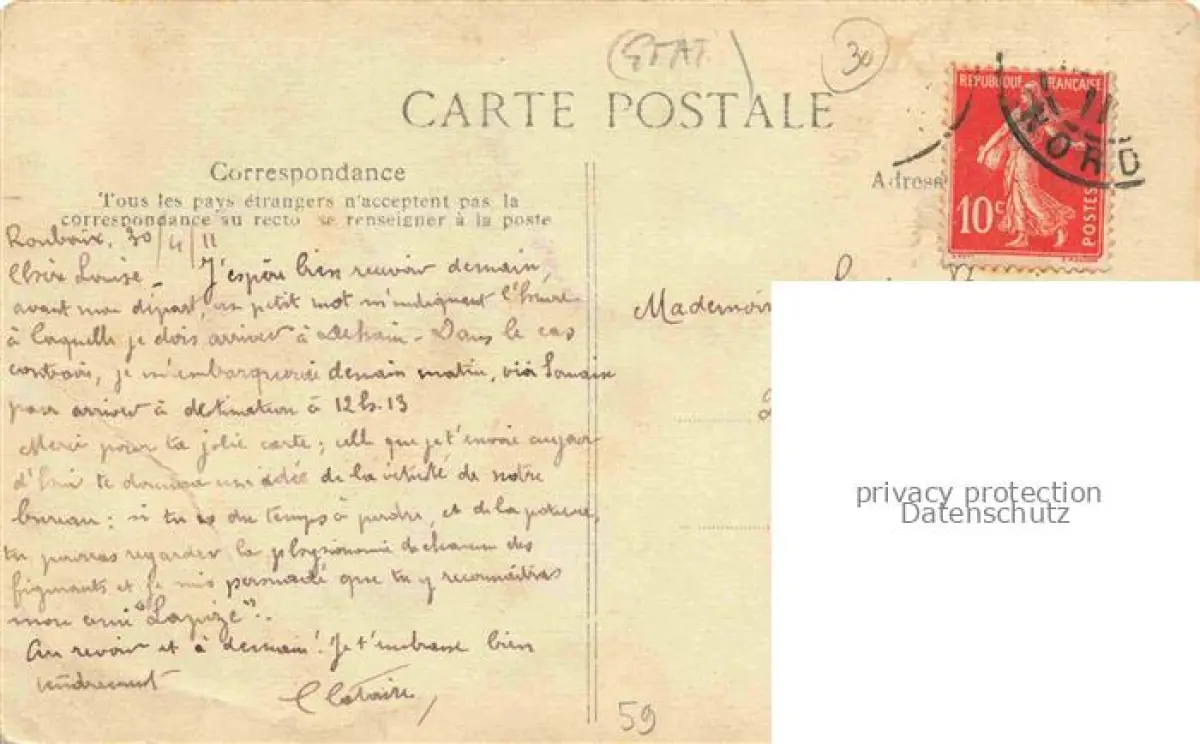 (ETAT)
30
CARTE POSTALE
RÉPUBLIQUE FRANÇAISE
10c
POSTES
11
NORD
Correspondance
Adresse
Tous les pays étrangers n'acceptent pas la
correspondance au recto se renseigner à la poste
Roubaix, 30/4/11
Chère Louise _ J'espère bien recevoir demain,
avant mon départ, un petit mot m'indiquant l'heure
à laquelle je dois arriver à Dehain _ Dans le cas
contraire, je m'embarquerai demain matin, via Somain
pour arriver à destination à 12h.13
Merci pour ta jolie carte; celle que je t'envoie aujour
d'hui te donnera une idée de la de notre
bureau: si tu as du temps à perdre, et de la patience,
tu pourras regarder la physionomie de chacun des
figurants et je suis persuadé que tu y reconnaîtras
mon ami "Lapize"..
Au revoir et à demain! Je t'embrasse bien
tendrement
Clotaire,
Mademois
59
privacy protection
Datenschutz